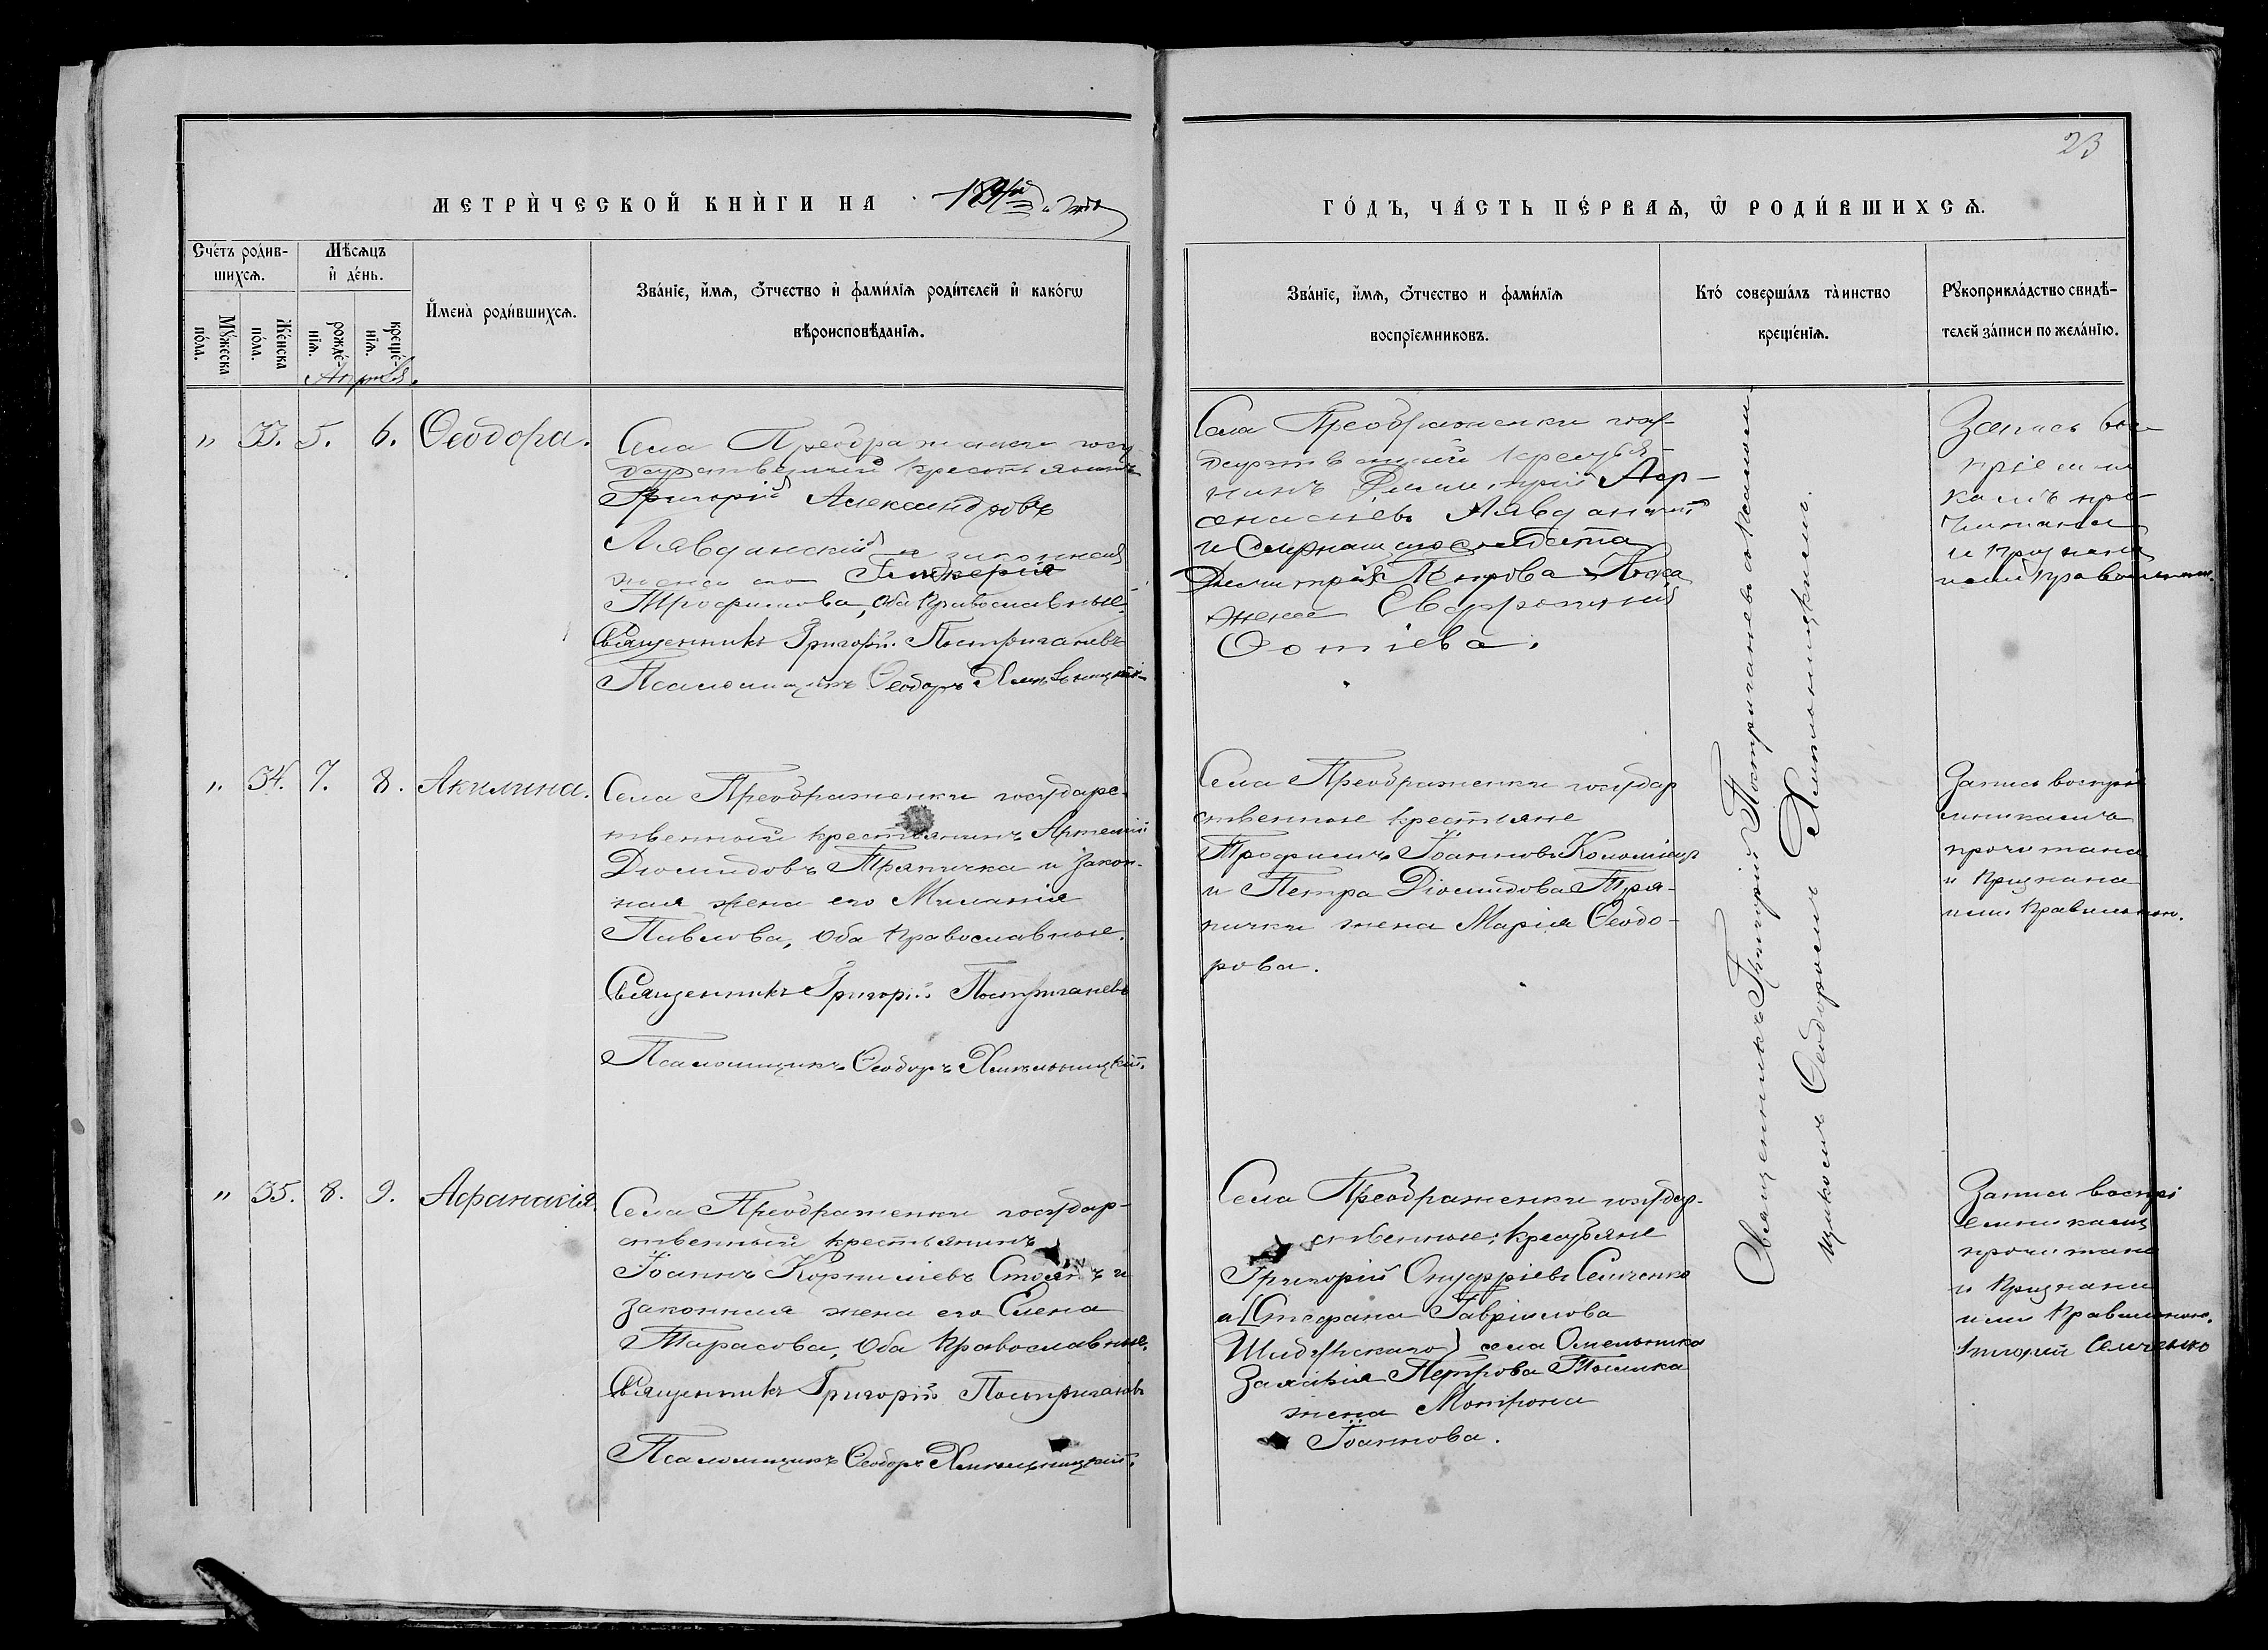 23
МЕТРИ́ЧЕСКОЙ КНИ́ГИ НА
ГО́ДЪ, ЧА́СТЬ ПЕ́РВАѦ, Ѿ РОДИ́ВШИХСѦ.
Сче́тъ родив-
шихсѧ.
Мꙋ́жеска
по́ла.
Же́нска
по́ла.
Мѣ́сѧцъ
и҆ де́нь.
рожде́-
нїѧ.
креще́-
нїѧ.
И҆мена̀ роди́вшихсѧ.
Зва́нїе, и҆́мѧ, ѻ҆́тчество и҆ фами́лїѧ роди́телей и҆ како́гѡ
вѣроисповѣ́данїѧ.
Зва́нїе, и҆́мѧ, ѻ҆́тчество и фами́лїѧ
воспрїемниковъ.
Кто́ соверша́лъ та̀инство
креще́нїѧ.
Рꙋкоприкла́дство свидѣ́-
телей за́писи по жела́нїю.
Апрѣль.
" 33. 5. 6. Ѳеодора.
Села Преображенки госу
дарственный крестьянинъ
Григорій Александровъ
Лявданскій и законная
жена его Гликерія
Трофимова, оба Православные.
Священникъ Григорій Постригачевъ
Псаломщикъ Ѳеодоръ Хмѣльницкій
Села Преображенки госу-
дарственный крестья-
нинъ Димитрій
Лявданскій
и
Димитрія Петрова
жена Евфросинія
Ѳотіева.
Запись вос-
пріемни
камъ про-
читана
и признана
ими правильною.
" 34. 7. 8. Акилина.
Села Преображенки государс-
твенный крестьянинъ Артемій
Діомидовъ Тряпичка и закон-
ная жена его Миланія
Павлова, оба Православные.
Священникъ Григорій Постригачевъ
Псаломщикъ Ѳеодоръ Хмѣльницкій.
Села Преображенки государ
ственные крестьяне
Трофимъ Іоанновъ Коломіецъ
и Петра Діомидова Тря-
пички жена Марія Ѳеодо-
рова.
Запись воспріе
мникамъ
прочитана
и признана
ими правильною.
" 35. 8. 9. Афанасія.
Села Преображенки государ-
ственный крестьянинъ
Іоаннъ Корниліевъ Стоянъ и
законная жена его Елена
Тарасова, оба Православные.
Священникъ Григорій Постригачевъ
Псаломщикъ Ѳеодоръ Хмѣльницкій.
Села Преображенки государ-
ственные крестьяне
Григорій Онуфріевъ Семченко
и [Стефана Гавріилова
села Омельника
Петрова
жена Мотрона
Іоаннова.
Запись воспрі
емникамъ
прочитана
и признана
ими правильною.
Григорій Семченко
Священникъ Григорій Постригачевъ съ Псалом-
щикомъ Ѳеодоромъ Хмѣльницкимъ.